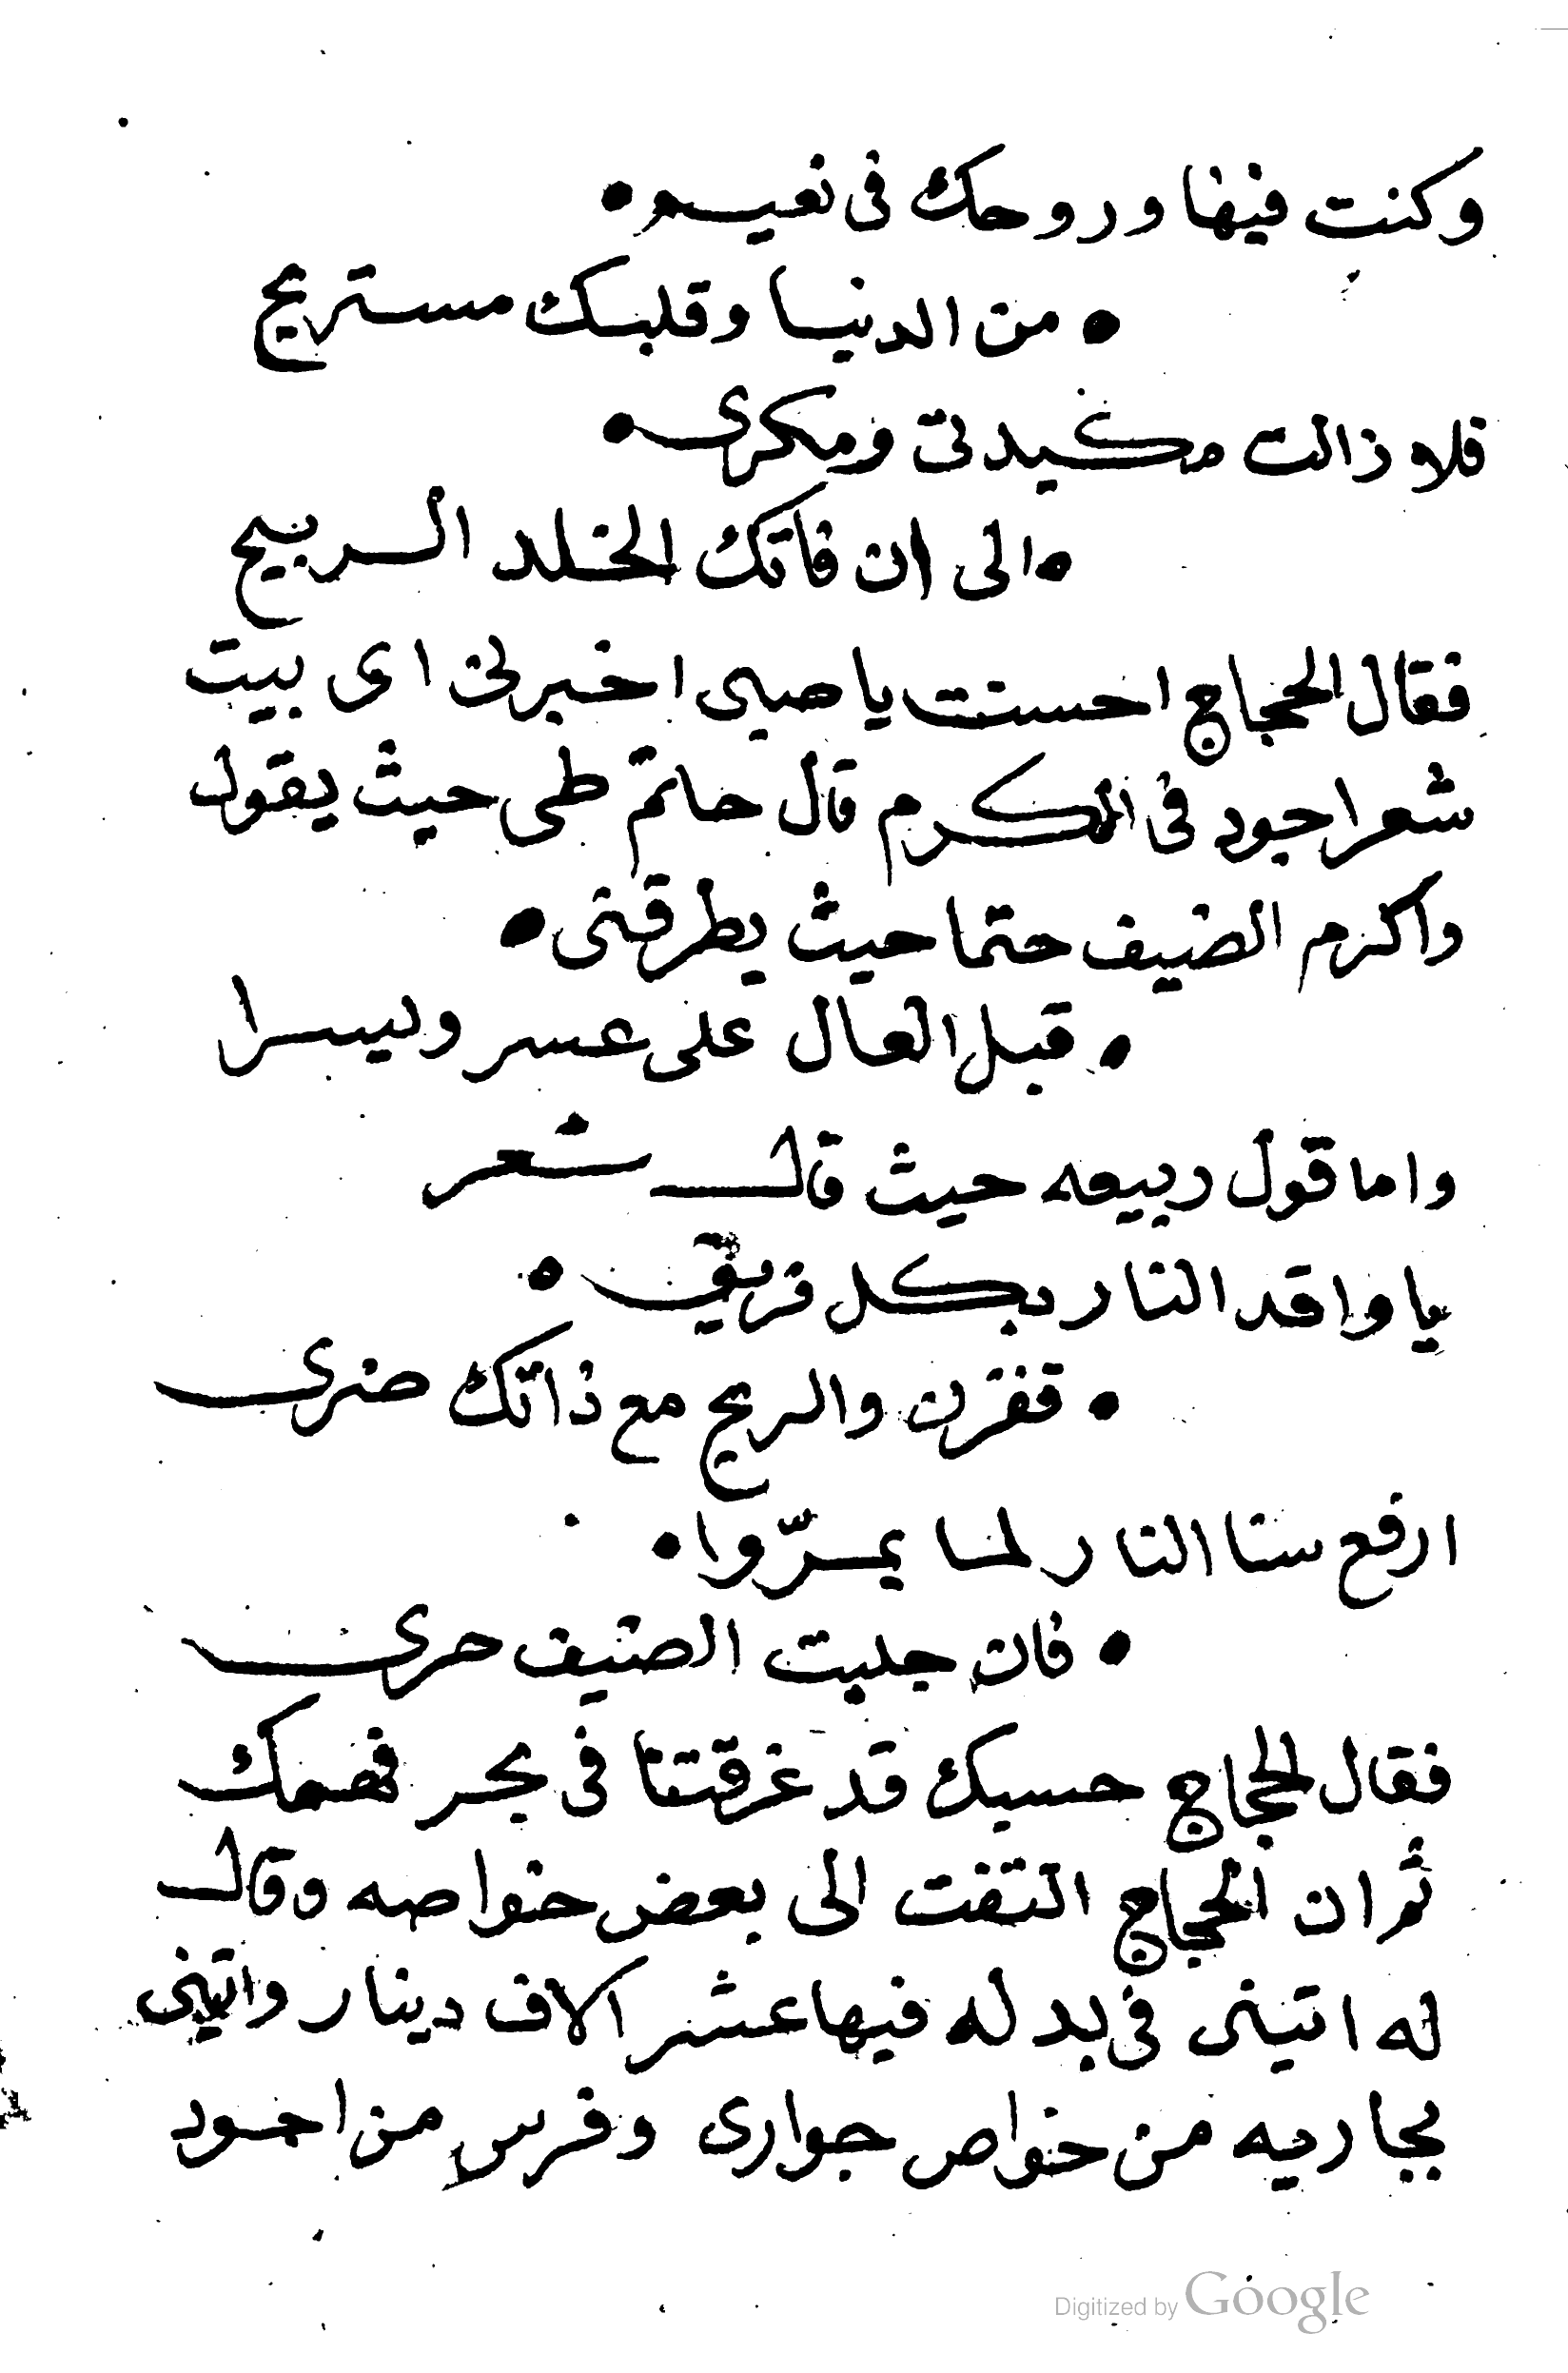 وكنت فيها وروحك فى نعيم •
• من الدنيا وقلبك مستريح
فلا زالت مكيدتى ومكرى •
• الى ان فاتك الخلد الربيح
فقال الحجاج احسنت يا صبى اخبرنى اى بيت
شعر اجود فى الكرم قال حاتم طى حيث يقول
واكرم الضيف حتما حيث يطرقنى •
• قبل العال على عسر ويسرا
واما قول ربيعه حيث قال شعر
يا واقد النار بكل فريق •
• والريح مع ذاتك ضرى
ارفع سنا النار لنا يمرّوا •
• فان جلبت الضيف حرى
فقال الحجاج حسبك قد غرقتنا فى بحر فهمك
ثم ان الحجاج التفت الى بعض خواصه وقال
له اتينى فى بدله فيها عشر الاف دينار واتينى
بجاريه من خواص جوارى وفرس من اجود
Digitized by Google